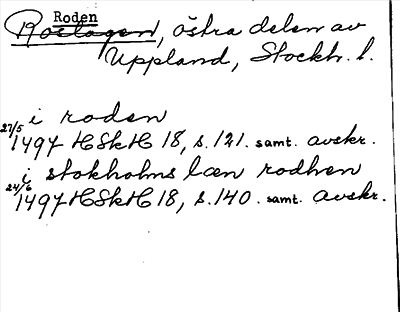 Roden
Roslagen, östra delen av
Uppland, Stockh. l.
i roden
27/5 1497 HSkH 18, s. 121. samt. avskr.
i stokholms læn rodhen
24/6 1497 HSkH 18, s. 140. samt. avskr.